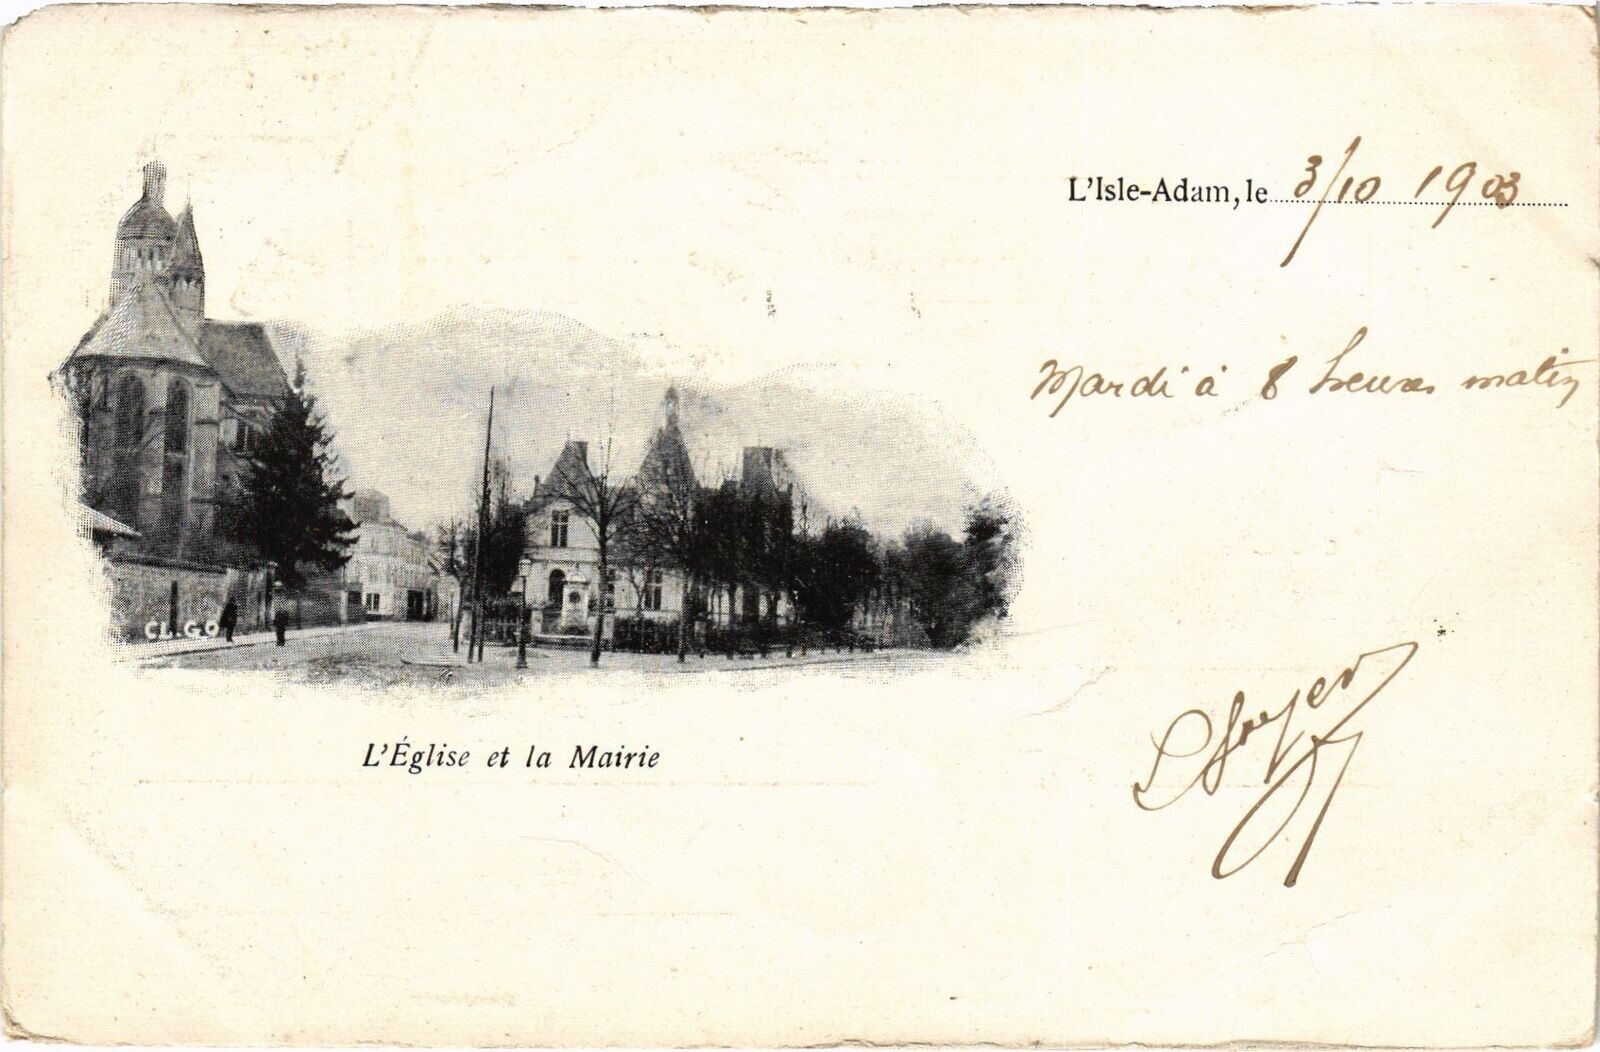 L'Isle-Adam, le 3/10 1903
Mardi à 8 heures matin
CL. G O
L'Église et la Mairie